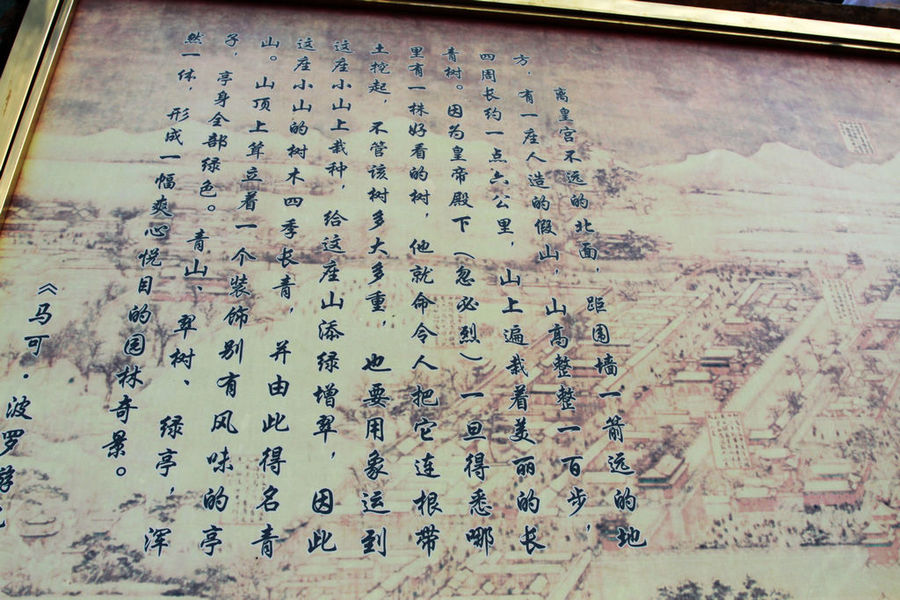 离皇宫不远的北面，距围墙一箭远的地
方，有一座人造的假山，山高整整一百步，
四周长约一点六公里，山上遍栽着美丽的长
青树。因为皇帝殿下（忽必烈）一旦得悉哪
里有一株好看的树，他就命令人把它连根带
土挖起，不管该树多大多重，也要用象运到
这座小山上栽种，给这座山添绿增翠，因此
这座小山的树木四季长青，并由此得名青
山。山顶上耸立着一个装饰别有风味的亭
子，亭身全部绿色。青山、翠树、绿亭，浑
然一体，形成一幅爽心悦目的园林奇景。
《马可·波罗游